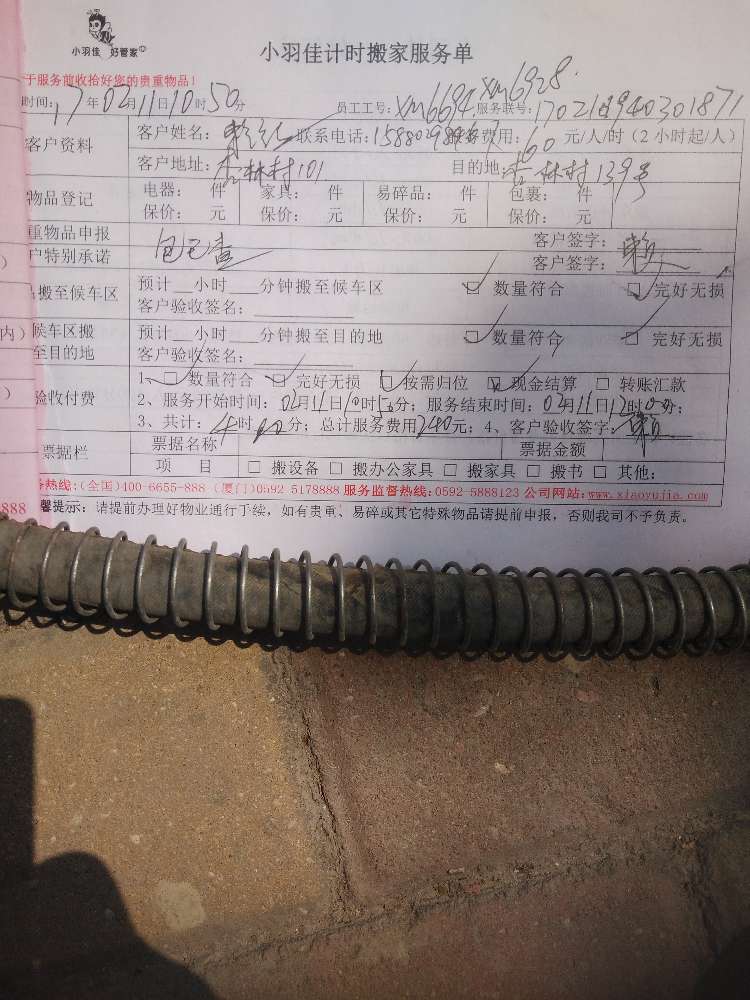 小羽佳 好管家
小羽佳计时搬家服务单
于服务前收拾好您的贵重物品!
时间: 17年02月11日10时50分 员工工号: XM6694. XM6928. 服务联号:
客户资料 客户姓名: 联系电话: 费用: 60 元/人/时(2小时起/人)
客户地址: 杏林村101 目的地: 杏林村139号
物品登记 电器: 件 家具: 件 易碎品: 件 包裹: 件
保价: 元 保价: 元 保价: 元 保价: 元
重物品申报 客户签字:
户特别承诺 包已查 客户签字:
搬至候车区 预计__小时__分钟搬至候车区 数量符合 完好无损
客户验收签名:
内) 候车区搬 预计__小时__分钟搬至目的地 数量符合 完好无损
至目的地 客户验收签名:
1、数量符合 完好无损 按需归位 现金结算 转账汇款
验收付费 2、服务开始时间: 02月11日10时50分; 服务结束时间: 02月11日12时00分;
3、共计: 4时 分; 总计服务费用240元; 4、客户验收签字:
票据栏 票据名称 票据金额
项 目 搬设备 搬办公家具 搬家具 搬书 其他:
务热线:(全国)400-6655-888 (厦门)0592-5178888 服务监督热线:0592-5888123 公司网站:www.xiaoyujia.com
888 馨提示: 请提前办理好物业通行手续, 如有贵重、易碎或其它特殊物品请提前申报, 否则我司不予负责。